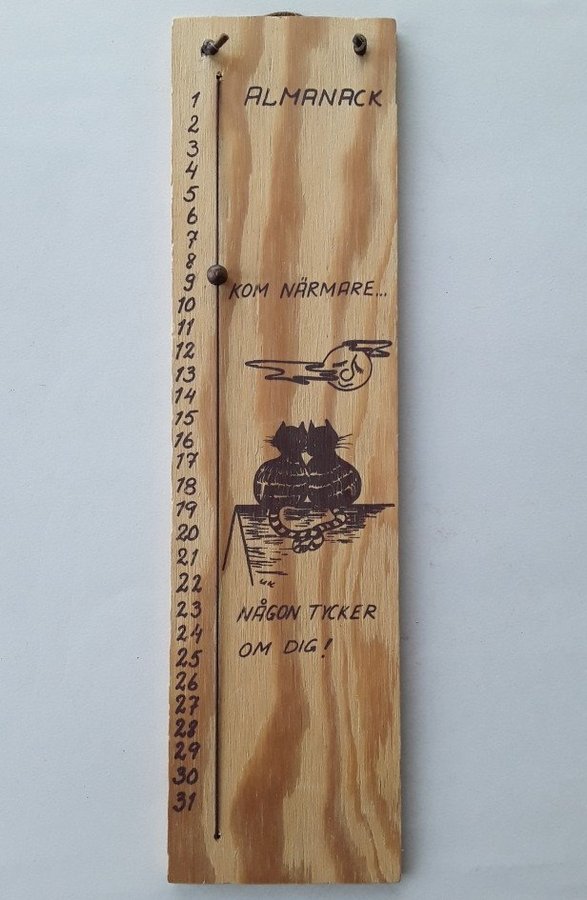 ALMANACK
1
2
3
4
5
6
7
8
9
10
11
12
13
14
15
16
17
18
19
20
21
22
23
24
25
26
27
28
29
30
31
KOM NÄRMARE...
NÅGON TYCKER
OM DIG!